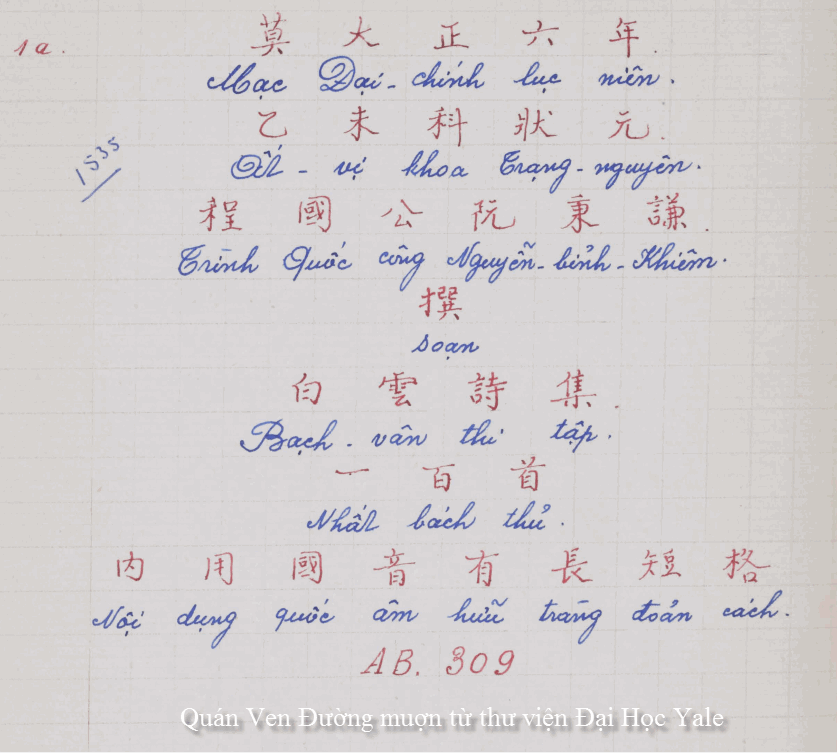 1a.
莫 大 正 六 年.
Mạc Đại - chính lục niên.
乙 未 科 狀 元.
Ất - vị khoa Trạng - nguyên.
1535
程 國 公 阮 秉 謙.
Trình Quốc công Nguyễn - bỉnh - Khiêm.
撰
soạn
白 雲 詩 集.
Bạch - vân thi tập.
一 百 首
Nhất bách thủ.
内 用 國 音 有 長 短 格
Nội dụng quốc âm hữu tràng đoản cách.
AB. 309
Quán Ven Đường mượn từ thư viện Đại Học Yale